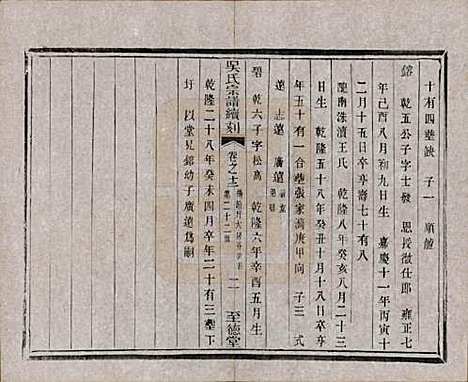 十有四塟缺 子一 順館
鎔 乾五公子字士發 恩授徵仕郎 雍正七
年己酉八月初九日生 嘉慶十一年丙寅十
二月十五日卒享壽七十有八
龍南洙濆王氏 乾隆八年癸亥八月二十三
日生 乾隆五十八年癸丑十月十八日卒享
年五十有一合塟張家灣庚甲向 子三 式
遠 志遠 廣遠
吳氏宗譜續刻 卷之十三
二十二世 二 至德堂
碧 乾六子字松高 乾隆六年辛酉五月生
乾隆二十八年癸未四月卒年二十有三塟下
圩 以堂兄鎔幼子廣遠爲嗣